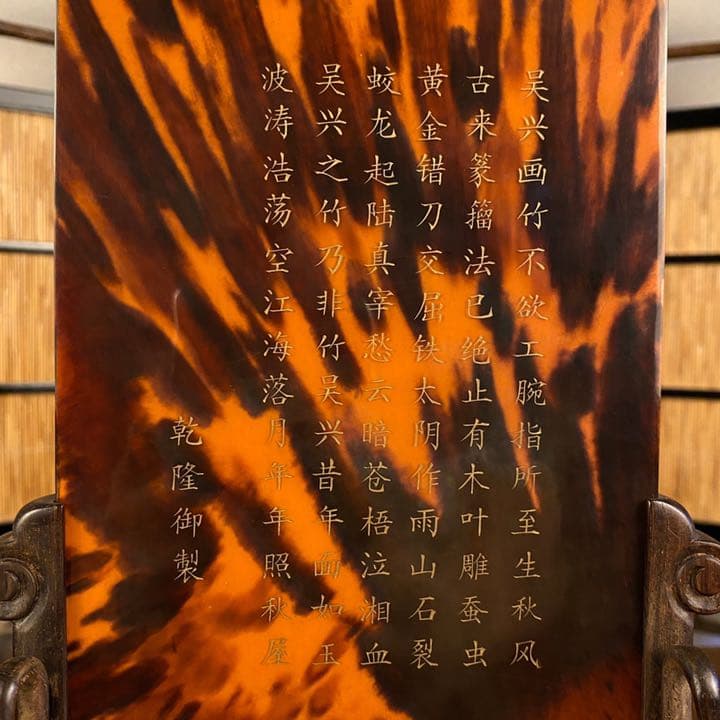 吴兴画竹不欲工腕指所至生秋风
古来篆籀法已绝止有木叶雕蚕虫
黄金错刀交屈铁太阴作雨山石裂
蛟龙起陆真宰愁云暗苍梧泣湘血
吴兴之竹乃非竹吴兴昔年面如玉
波涛浩荡空江海落月年年照秋屋
乾隆御製